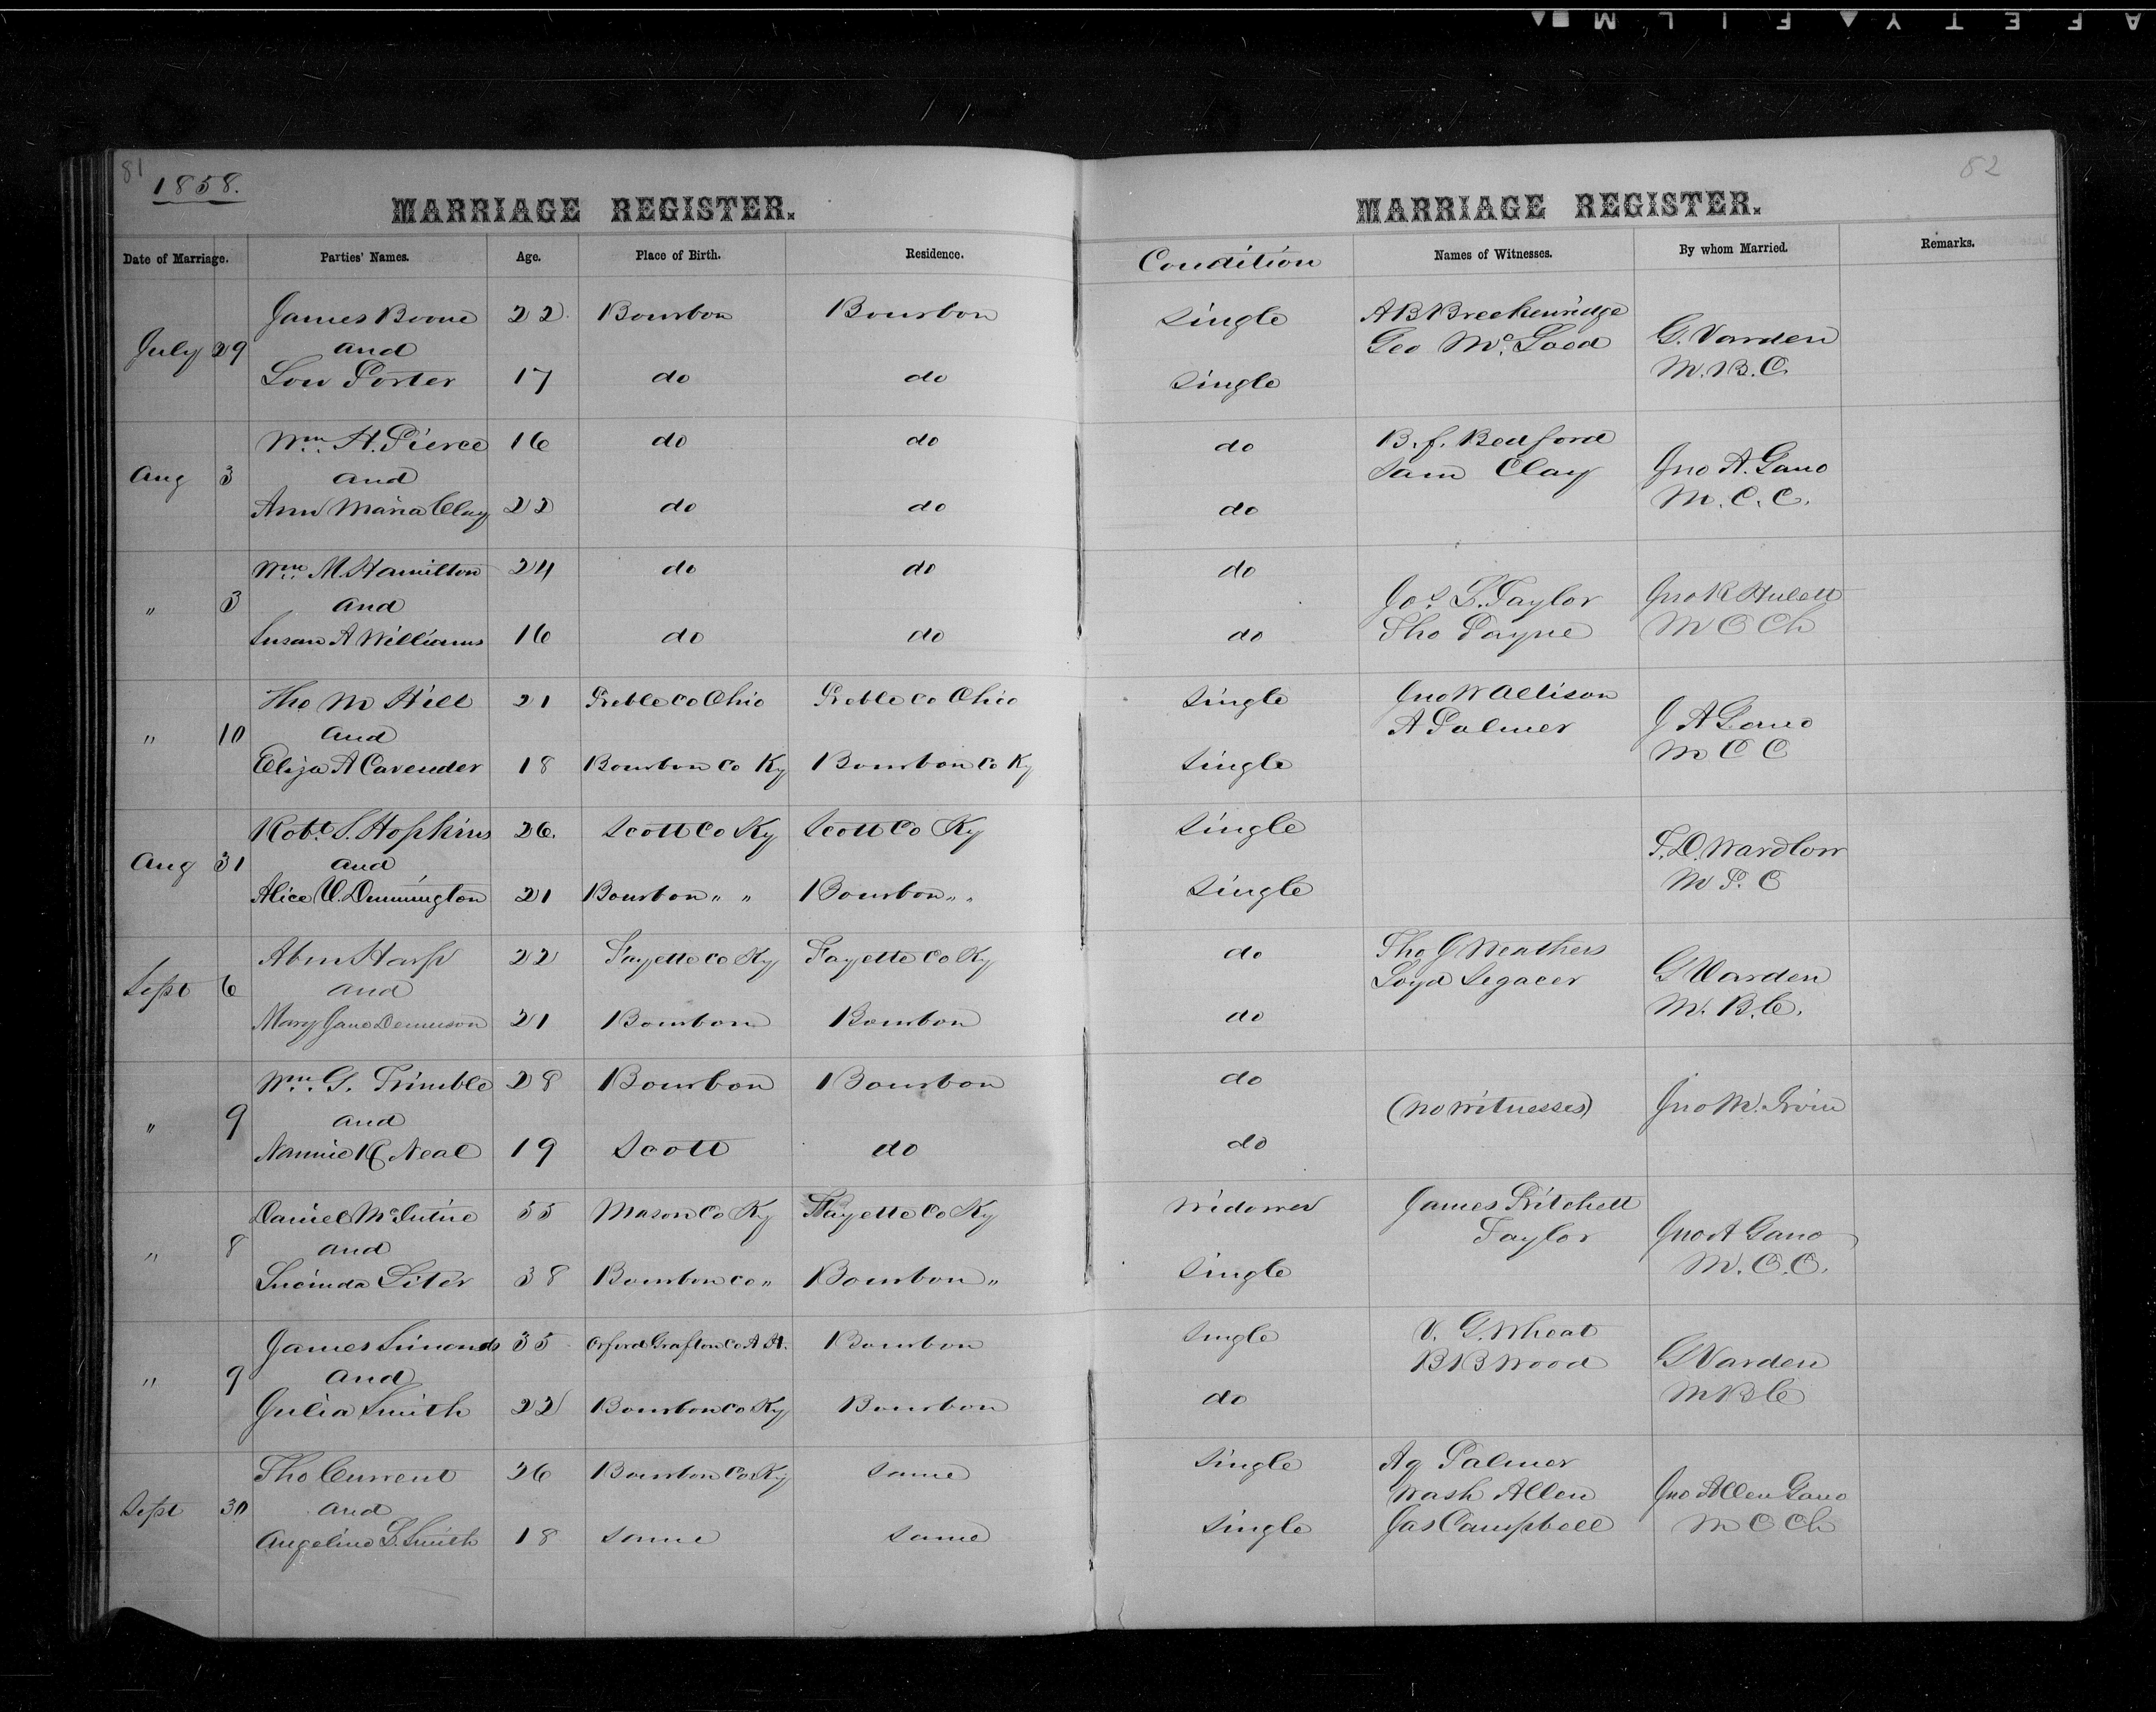 SAFETY FILM
81
1858.
MARRIAGE REGISTER.
Date of Marriage. Parties' Names. Age. Place of Birth. Residence.
James Boone 22. Bourbon Bourbon
July 29 and
Lou Porter 17 do do
Wm. H. Pierce 16 do do
Aug 3 and
Ann Maria Clay 22 do do
Wm. M. Hamilton 24 do do
" 3 and
Susan A Williams 16 do do
Tho M Hill 21 Preble Co Ohio Preble Co Ohio
" 10 and
Eliza A Cavender 18 Bourbon Co Ky Bourbon Co Ky
Robt. S. Hopkins 26. Scott Co Ky Scott Co Ky
Aug 31 and
Alice V. Dunnington 21 Bourbon " " Bourbon " "
Abm Harp 22 Fayette Co Ky Fayette Co Ky
Sept 6 and
Mary Jane Dennison 21 Bourbon Bourbon
Wm. G. Trimble 28 Bourbon Bourbon
" 9 and
Nannie K Neal 19 Scott do
Daniel McIntire 55 Mason Co Ky Fayette Co Ky
" 8 and
Lucinda Liter 38 Bourbon co " Bourbon "
James Simonds 35 Orford Grafton Co N H. Bourbon
" 9 and
Julia Smith 22 Bourbon co Ky Bourbon
Tho Current 26 Bourbon Co Ky Same
Sept 30 and
Angeline L. Smith 18 Same Same
82
MARRIAGE REGISTER.
Condition Names of Witnesses. By whom Married. Remarks.
Single A B Breckenridge
Geo Mc. Lood G. Varden
Single M. B. C.
do B. f. Bedford
Sam Clay Jno A. Gano
do M. C. C.
do
Jos. L. Taylor Jno R Hulett
do Tho Payne M C Ch
Single Jno W Allison
A Palmer J A Gano
Single M C C
Single
T. D. Wardlow
Single M P. C
do Tho G Weathers
Loyd G Varden
do M. B. C.
do
(no witnesses) Jno M. Irvin
do
Widower James Pritchett
Taylor Jno A Gano
Single M. C. C.
Single V. G. Wheat
B B Wood G Varden
do M B C
Single Aq Palmer
Wash Allen Jno Allen Gano
Single Jas Campbell M C Ch